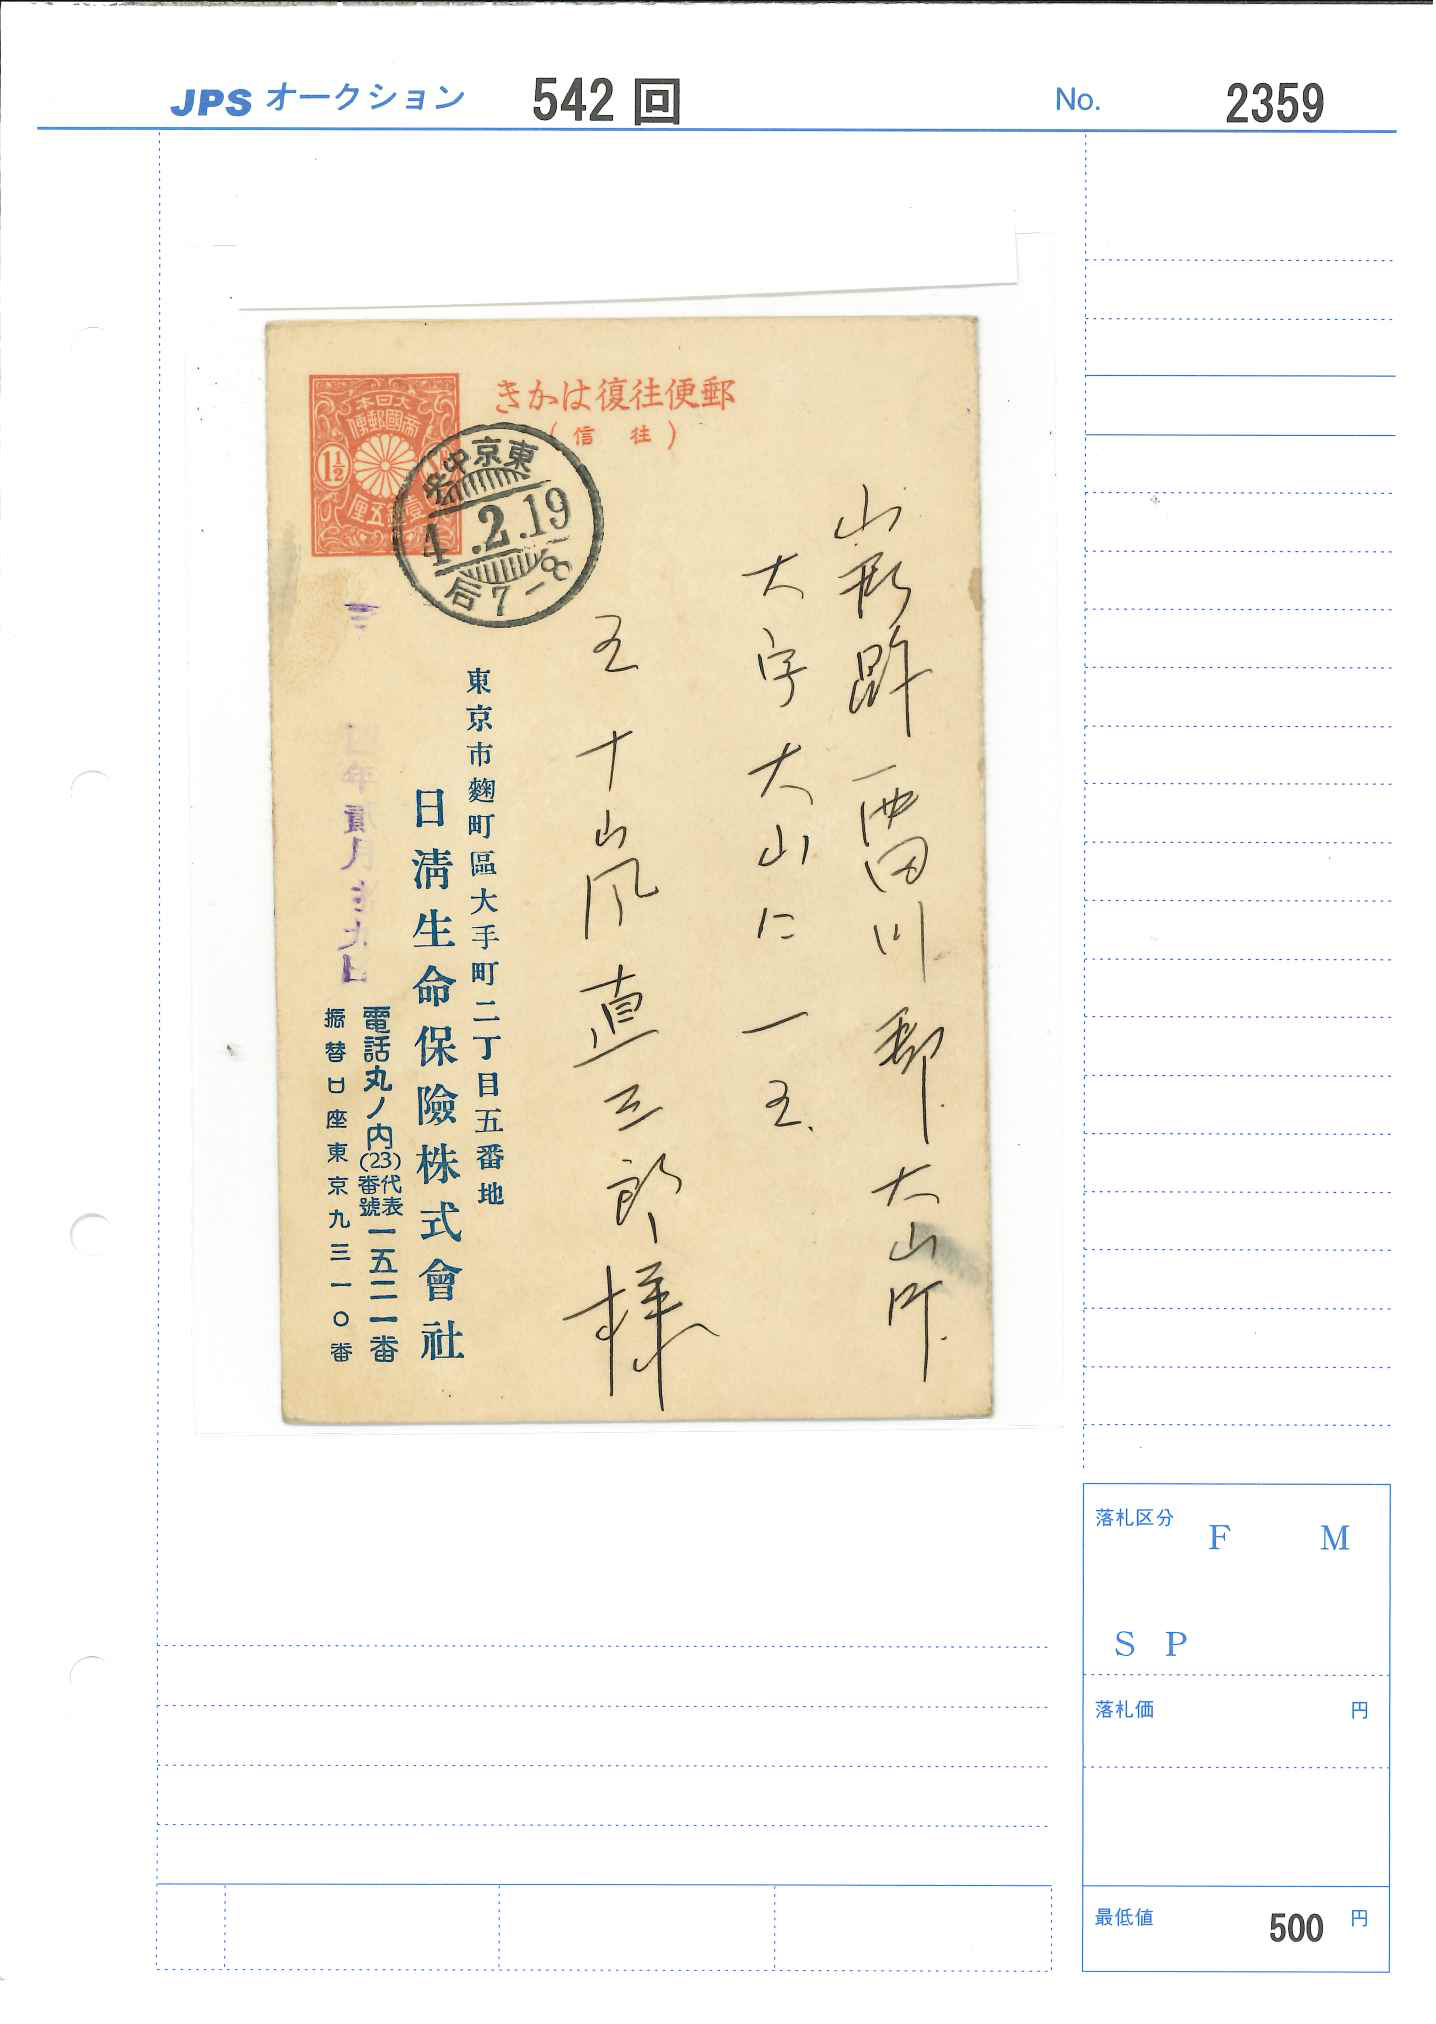 JPS オークション 542 回 No. 2359
郵便往復はかき
(往信)
大日本
帝國郵便
1½
壹錢五厘
東京中央
4.2.19
后7-8
山形縣西田川郡大山町
大字大山仁一五
五十嵐直三郎様
東京市麴町區大手町二丁目五番地
日淸生命保險株式會社
電話丸ノ内(23)代表番號一五二一番
振替口座東京九三一〇番
四年貳月拾九日
落札区分
F M
S P
落札価 円
最低値 500 円